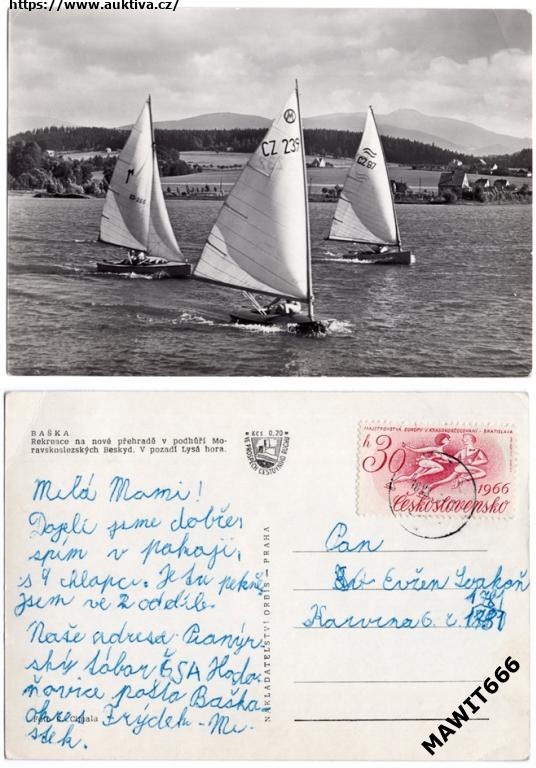 https://www.auktiva.cz/
CZ 239
CZ 97
BAŠKA
Rekreace na nové přehradě v podhůří Mo-
ravskoslezských Beskyd. V pozadí Lysá hora.
Kčs 0,70
VE PROSPĚCH CESTOVNÍHO RUCHU
MAJSTROVSTVÁ EURÓPY V KRASOKORČUĽOVANÍ - BRATISLAVA
h 30
1966
Československo
Milá Mami!
Dojeli jsme dobře
spím v pokoji,
s 4 chlapci. Je tu pekně
jsem ve 2 oddíle.
Naše adresa Pionýr-
ský tábor ČSA Hodo-
ňovice pošta Baška
okres Frýdek-Mí-
stek.
NAKLADATELSTVÍ ORBIS — PRAHA
Pan
Evžen
Karvina 6. č.
Foto
MAWIT666